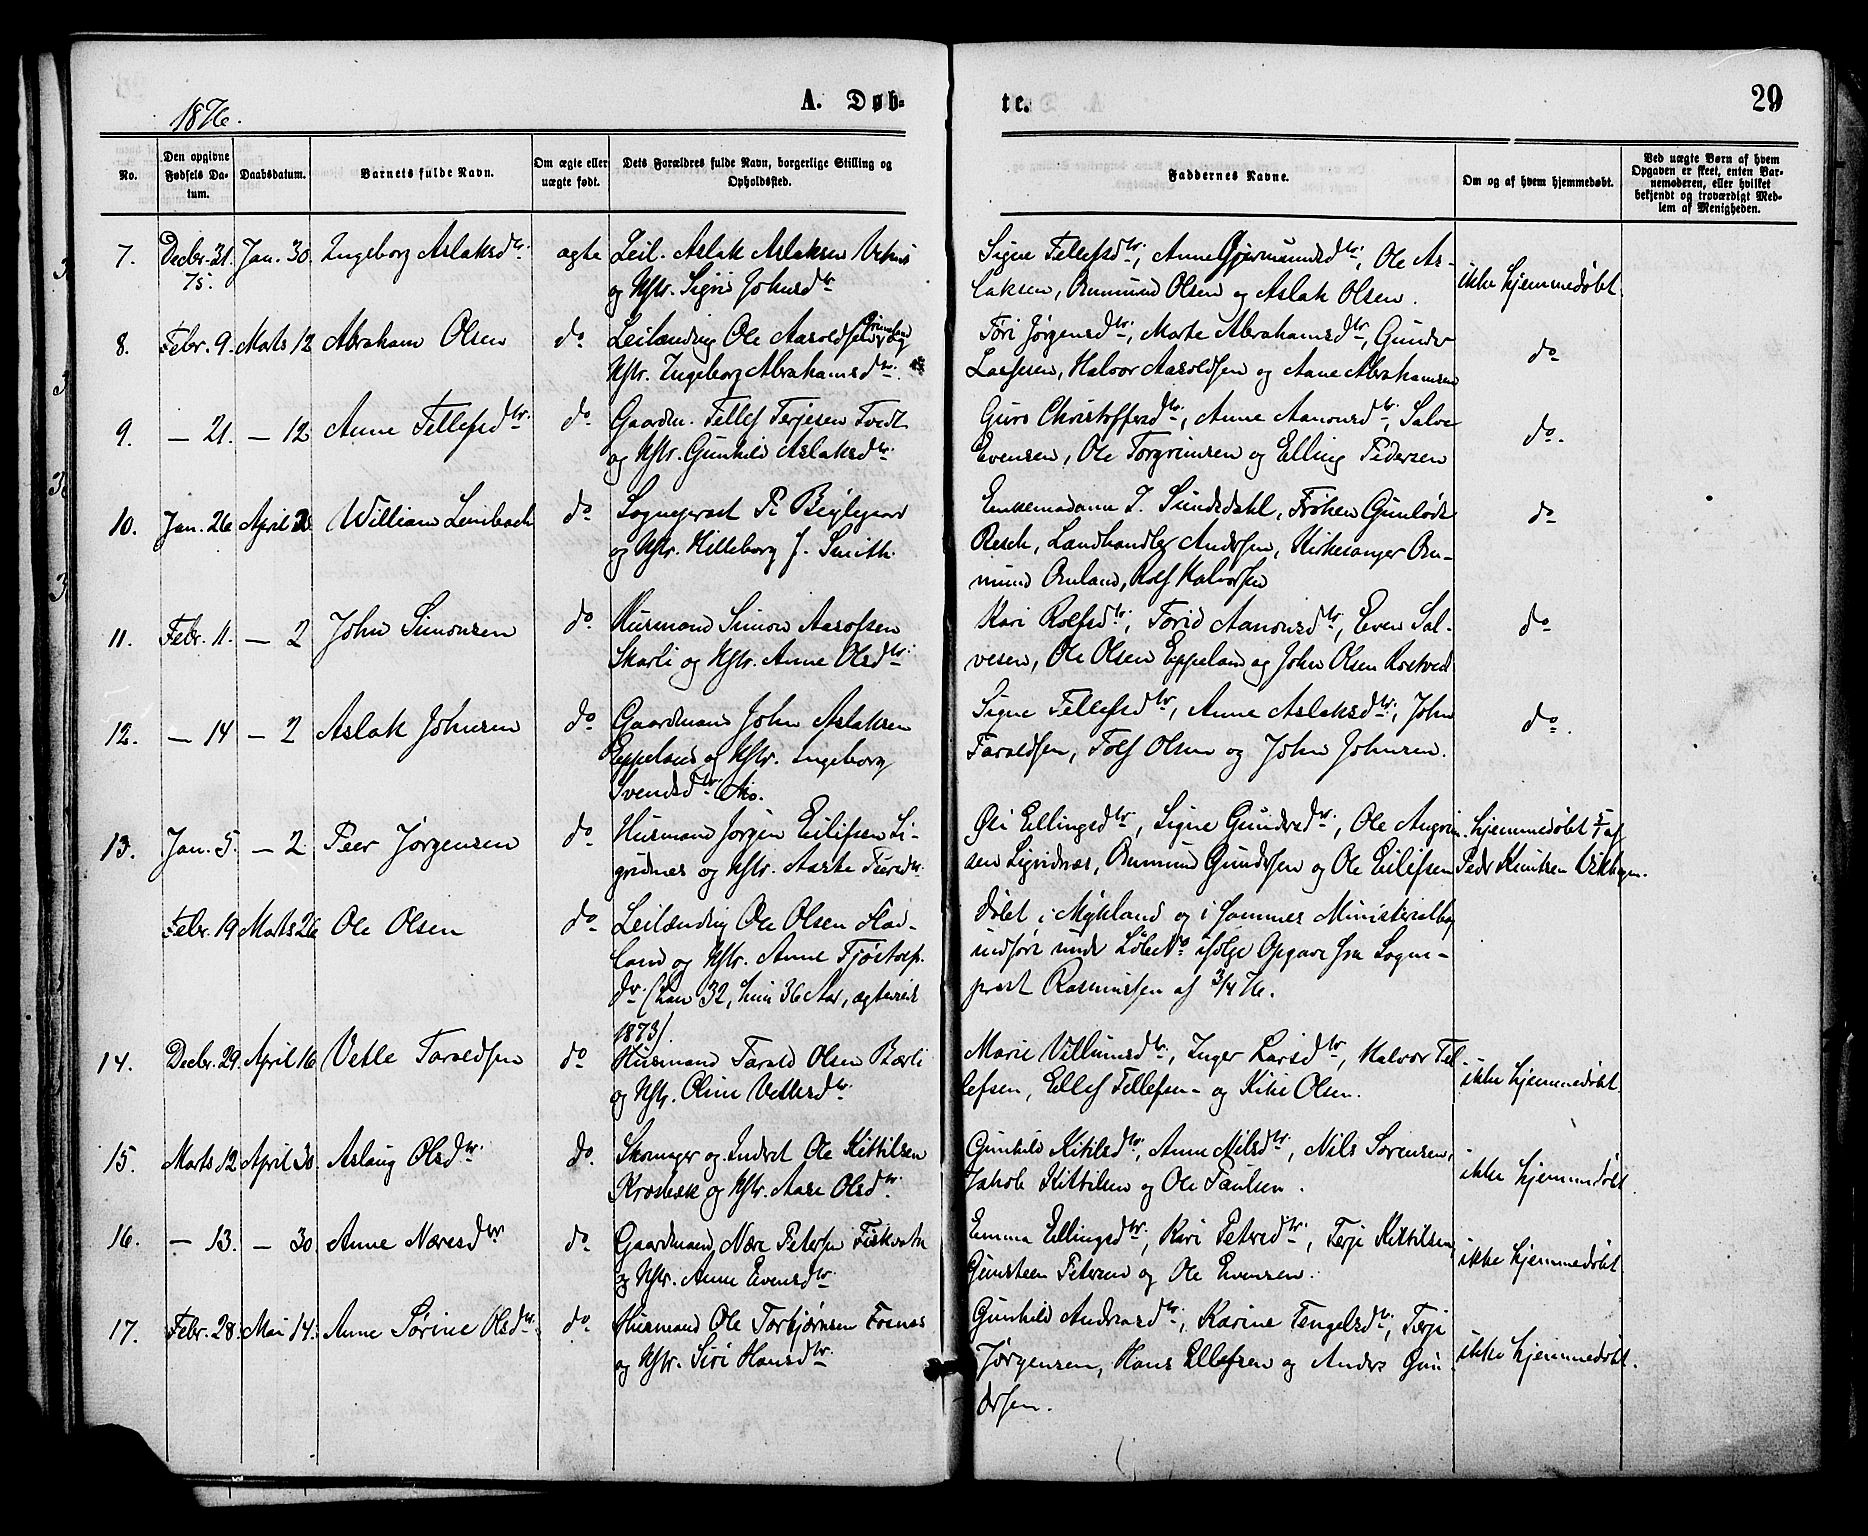 1876.
A. Døb-
te.
29
No.
Den opgivne Fødsels Da-tum.
Daabsdatum.
Barnets fulde Navn.
Om ægte eller uægte født.
Dets Forældres fulde Navn, borgerlige Stilling og Opholdssted.
Faddernes Navne.
Om og af hvem hjemmedøbt.
Ved uægte Børn af hvem Opgaven er skeet, enten Bar-nemoderen, eller hvilket bekjendt og troværdigt Med-lem af Menigheden.
7. Decbr. 31. Jan. 30. Ingeborg Aslaksdtr. ægte Leil. Aslak Aslaksen
75.
og Hstr. Sigri Johnsdtr
Signe Tellefsdtr., Anne Gjermundsdtr., Ole As-
laksen, Omund Olsen og Aslak Olsen.
ikke hjemmedøbt.
8. Febr. 9. Marts 12 Abraham Olsen do Leilænding Ole Aasoldsen og
Hstr. Ingeborg Abrahamsdtr.
Tøri Jørgensdtr., Marte Abrahamsdtr, Gunder
Lassesen, Halvor Aasoldsen og Aane Abrahamsen
do
9. – 21. – 12 Anne Tellefsdtr. do Gaardm. Tellef Terjesen Tvedt
og Hstr. Gunhild Aslaksdtr.
Guro Christoffersdtr., Anne Aanonsdtr., Salve
Evensen, Ole Torgrimsen og Elling Pedersen
do.
10. Jan. 26 April 2 William Leimbach do. Sognepræst P. Beiglegaard
og Hstr. Hilleborg J. Smith.
Enkemadame J. Sundsdahl, Frøken Gunløde
Resch, Landhandler Andersen, Kirkesanger Om-
mund Omland, Rolf Halvorsen
do
11. Febr. 11. – 2 John Simonsen do. Husmand Simon Aarofsen
Skarli og Hstr. Anne Olsdtr.
Kari Rolfsdtr., Torid Aanonsdtr., Even Sal-
vesen, Ole Olsen Eppeland og John Olsen Rostved
do
12. – 14 – 2 Aslak Johnsen do Gaardmand John Aslaksen
Eppeland og Hstr. Ingeborg
Svendsdtr.
Signe Tellefsdtr, Anne Aslaksdtr., John
Taraldsen, Tolf Olsen og John Johnsen.
do.
13. Jan. 5. – 2. Peer Jørgensen do Husmand Jørgen Eilifsen Si-
gridnes og Hstr. Aaste
Øli Ellingsdtr, Signe Gundersdtr., Ole Augrim-
sen Sigridnæs, Ommund Gundersen og Ole Eilifsen
hjemmedøbt af
Peder Knutsen
Febr. 19 Marts 26 Ole Olsen do. Leilænding Ole Olsen Flad-
land og Hstr. Anne Tjøstolfs-
dtr. (han 32, hun 36 Aar, ægteviet
1873)
døbt i Mykland og i sammes Ministerialbog
indført under Løbe No ifølge Opgave fra Sogne-
præst Rasmussen af 3/4 76.
14. Decbr. 29. April 16 Vetle Taraldsen do. Husmand Tarald Olsen Bærli
og Hstr. Oline Vetlesdtr.
Marie Villumsdtr., Inger Larsdtr., Halvor Tel-
lefsen, Ellef Tellefsen og Kitil Olsen.
ikke hjemmedøbt
15. Marts 12 April 30. Aslaug Olsdtr. do. Skomager og Inderst Ole Kittilsen
Krosbæk og Hstr. Aase Olsdtr.
Gunhild Kitilsdtr., Anne Nilsdtr., Nils Sørensen,
Jakob Kittilsen og Ole Paulsen.
ikke hjemmedøbt.
16. – 13. – 30. Anne Næresdtr do. Gaardmand Nære Petersen Fiskvatn
og Hstr. Anne Evensdtr.
Emma Ellingsdtr., Kari Petersdtr., Terje Kittilsen,
Gunsteen Petersen og Ole Evensen.
ikke hjemmedøbt
17. Febr. 28. Mai 14. Anne Sørine Olsdtr. do. Husmand Ole Torbjørnsen Fosnes
og Hstr. Siri Hansdtr.
Gunhild Andreasdtr., Karine Tengelsdtr., Terje
Jørgensen, Hans Ellefsen og Anders Gun-
dersen.
ikke hjemmedøbt.